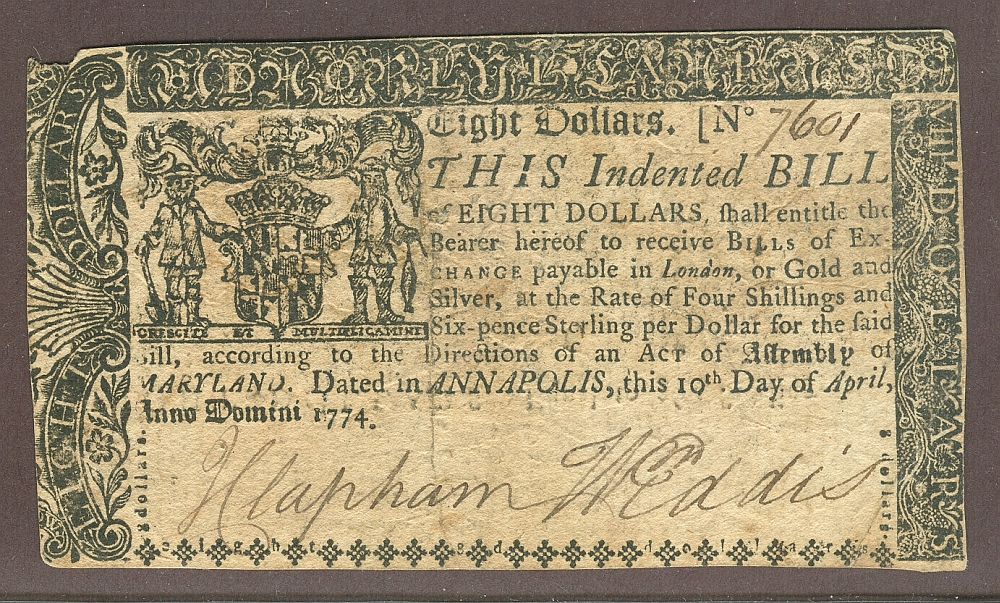 MARYLAND
EIGHT DOLLARS
Eight Dollars. [No 7601
THIS Indented BILL
of EIGHT DOLLARS, ſhall entitle the
Bearer hereof to receive BILLS of EX-
CHANGE payable in London, or Gold and
Silver, at the Rate of Four Shillings and
Six-pence Sterling per Dollar for the ſaid
CRESCITE ET MULTIPLICAMINI
Bill, according to the Directions of an ACT of Aſſembly of
MARYLAND. Dated in ANNAPOLIS, this 10th Day of April,
Anno Domini 1774.
JClapham WEddis
8 dollars.
8 dollars.
eight 8d dollars
VIII DOLLARS